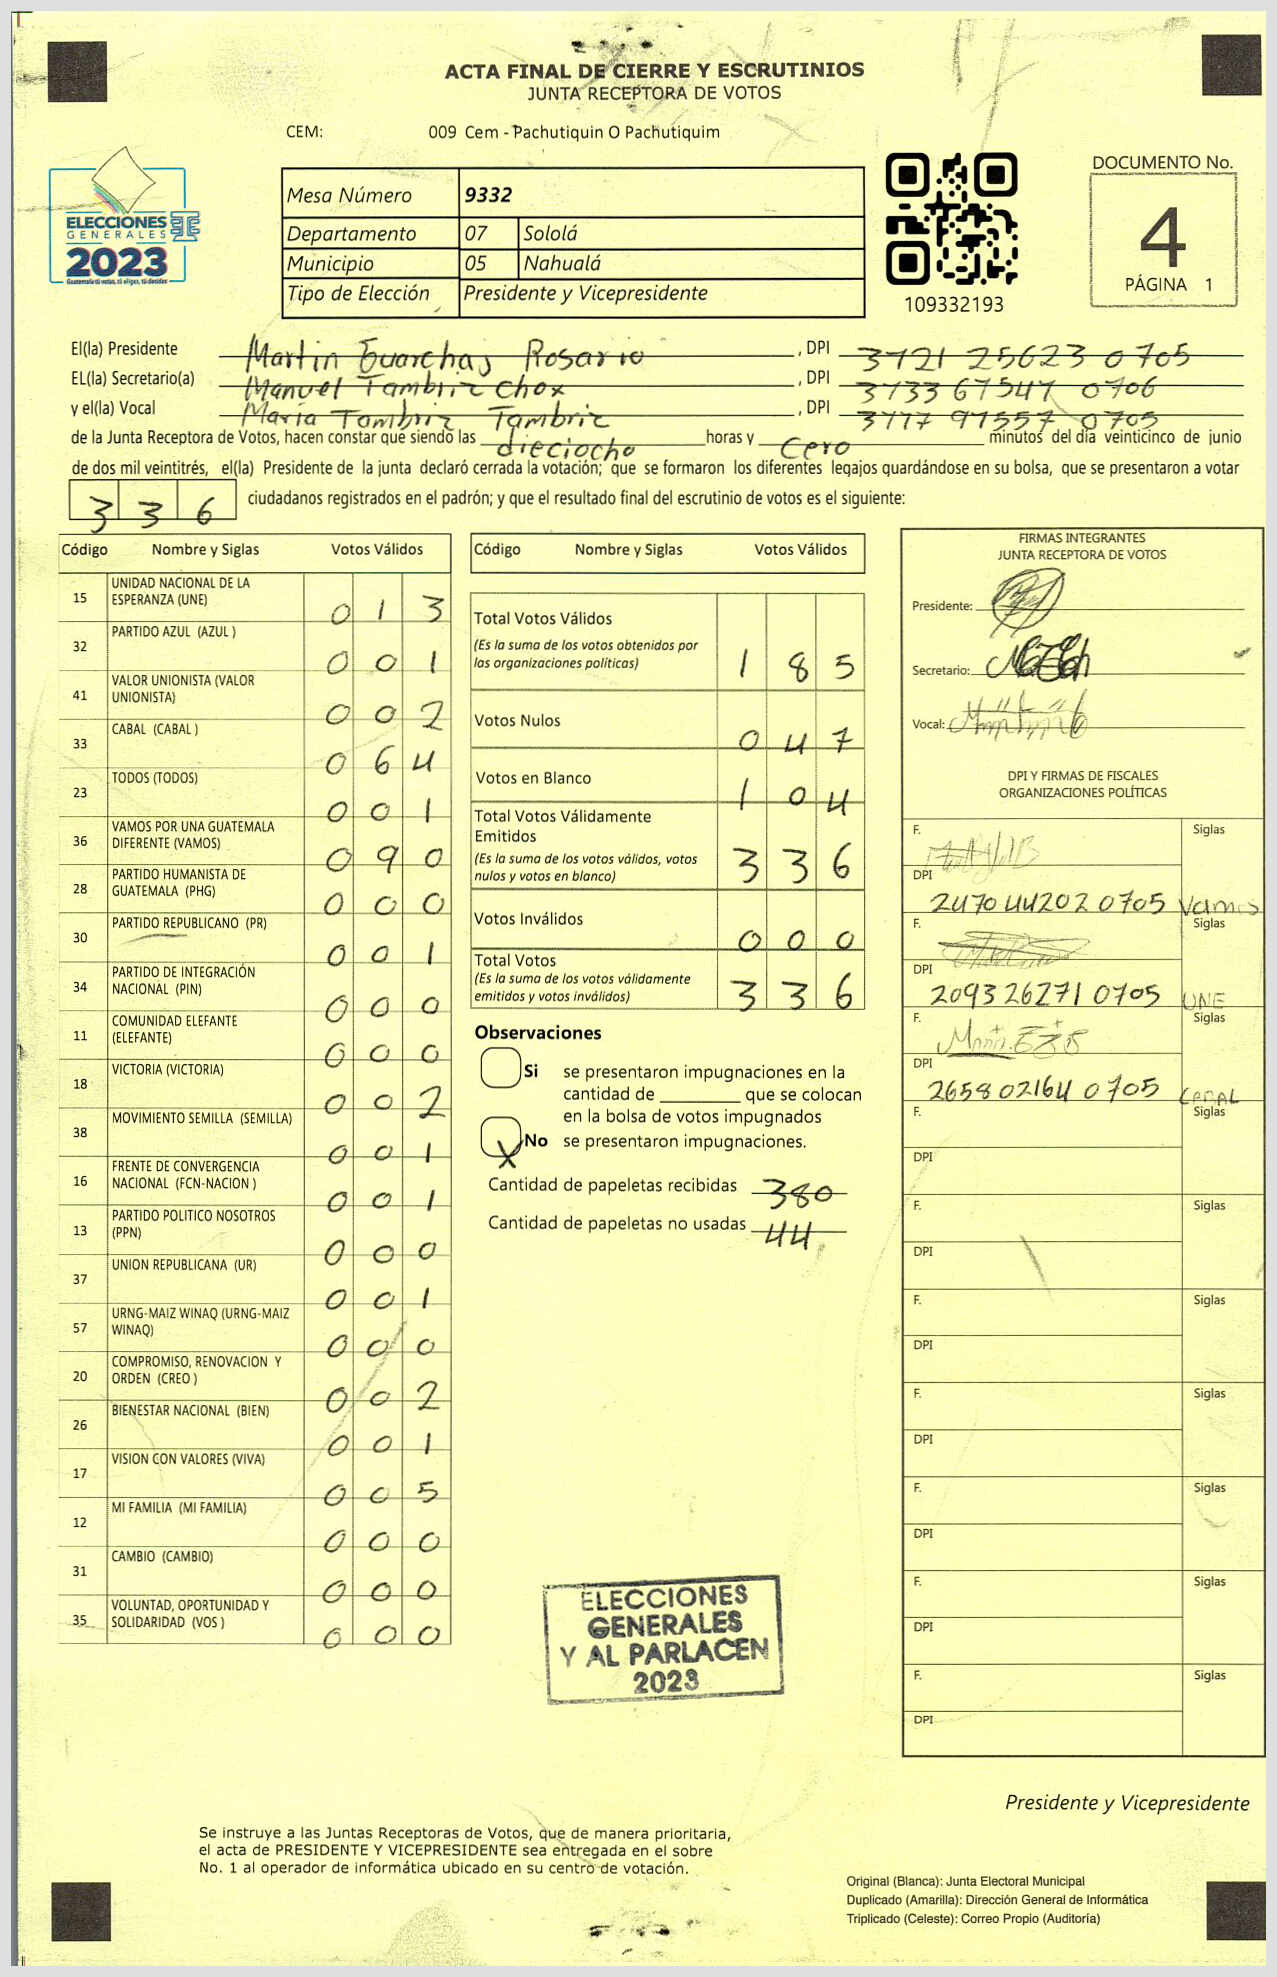 ACTA FINAL DE CIERRE Y ESCRUTINIOS
JUNTA RECEPTORA DE VOTOS
CEM: 009 Cem - Pachutiquin O Pachutiquim
ELECCIONES
GENERALES
2023
Mesa Número 9332
Departamento 07 Sololá
Municipio 05 Nahualá
Tipo de Elección Presidente y Vicepresidente
109332193
DOCUMENTO No.
4
PÁGINA 1
El(la) Presidente Martin Guarchaj Rosario, DPI 3721 25623 0705
EL(la) Secretario(a) Manuel Tambriz Chox, DPI 3733 67547 0706
y el(la) Vocal María Tambriz Tambriz, DPI 3777 97557 0705
de la Junta Receptora de Votos, hacen constar que siendo las dieciocho horas y Cero minutos del día veinticinco de junio
de dos mil veintitrés, el(la) Presidente de la junta declaró cerrada la votación; que se formaron los diferentes legajos guardándose en su bolsa, que se presentaron a votar
336 ciudadanos registrados en el padrón; y que el resultado final del escrutinio de votos es el siguiente:
Código Nombre y Siglas Votos Válidos
15 UNIDAD NACIONAL DE LA ESPERANZA (UNE) 0 1 3
32 PARTIDO AZUL (AZUL ) 0 0 1
41 VALOR UNIONISTA (VALOR UNIONISTA) 0 0 2
33 CABAL (CABAL ) 0 6 4
23 TODOS (TODOS) 0 0 1
36 VAMOS POR UNA GUATEMALA DIFERENTE (VAMOS) 0 9 0
28 PARTIDO HUMANISTA DE GUATEMALA (PHG) 0 0 0
30 PARTIDO REPUBLICANO (PR) 0 0 1
34 PARTIDO DE INTEGRACIÓN NACIONAL (PIN) 0 0 0
11 COMUNIDAD ELEFANTE (ELEFANTE) 0 0 0
18 VICTORIA (VICTORIA) 0 0 2
38 MOVIMIENTO SEMILLA (SEMILLA) 0 0 1
16 FRENTE DE CONVERGENCIA NACIONAL (FCN-NACION ) 0 0 1
13 PARTIDO POLITICO NOSOTROS (PPN) 0 0 0
37 UNION REPUBLICANA (UR) 0 0 1
57 URNG-MAIZ WINAQ (URNG-MAIZ WINAQ) 0 0 0
20 COMPROMISO, RENOVACION Y ORDEN (CREO ) 0 0 2
26 BIENESTAR NACIONAL (BIEN) 0 0 1
17 VISION CON VALORES (VIVA) 0 0 5
12 MI FAMILIA (MI FAMILIA) 0 0 0
31 CAMBIO (CAMBIO) 0 0 0
35 VOLUNTAD, OPORTUNIDAD Y SOLIDARIDAD (VOS ) 0 0 0
Código Nombre y Siglas Votos Válidos
Total Votos Válidos
(Es la suma de los votos obtenidos por
las organizaciones políticas) 1 8 5
Votos Nulos 0 4 7
Votos en Blanco 1 0 4
Total Votos Válidamente
Emitidos
(Es la suma de los votos válidos, votos
nulos y votos en blanco) 3 3 6
Votos Inválidos 0 0 0
Total Votos
(Es la suma de los votos válidamente
emitidos y votos inválidos) 3 3 6
Observaciones
Si se presentaron impugnaciones en la
cantidad de ________ que se colocan
en la bolsa de votos impugnados
X No se presentaron impugnaciones.
Cantidad de papeletas recibidas 380
Cantidad de papeletas no usadas 44
ELECCIONES
GENERALES
Y AL PARLACEN
2023
FIRMAS INTEGRANTES
JUNTA RECEPTORA DE VOTOS
Presidente:
Secretario:
Vocal:
DPI Y FIRMAS DE FISCALES
ORGANIZACIONES POLÍTICAS
F. Siglas
DPI 2470 44202 0705 Vamos
F. Siglas
DPI 2093 26271 0705 UNE
F. Siglas
DPI 2658 02164 0705 CABAL
F. Siglas
DPI
F. Siglas
DPI
F. Siglas
DPI
F. Siglas
DPI
F. Siglas
DPI
F. Siglas
DPI
F. Siglas
DPI
Presidente y Vicepresidente
Se instruye a las Juntas Receptoras de Votos, que de manera prioritaria,
el acta de PRESIDENTE Y VICEPRESIDENTE sea entregada en el sobre
No. 1 al operador de informática ubicado en su centro de votación.
Original (Blanca): Junta Electoral Municipal
Duplicado (Amarilla): Dirección General de Informática
Triplicado (Celeste): Correo Propio (Auditoría)